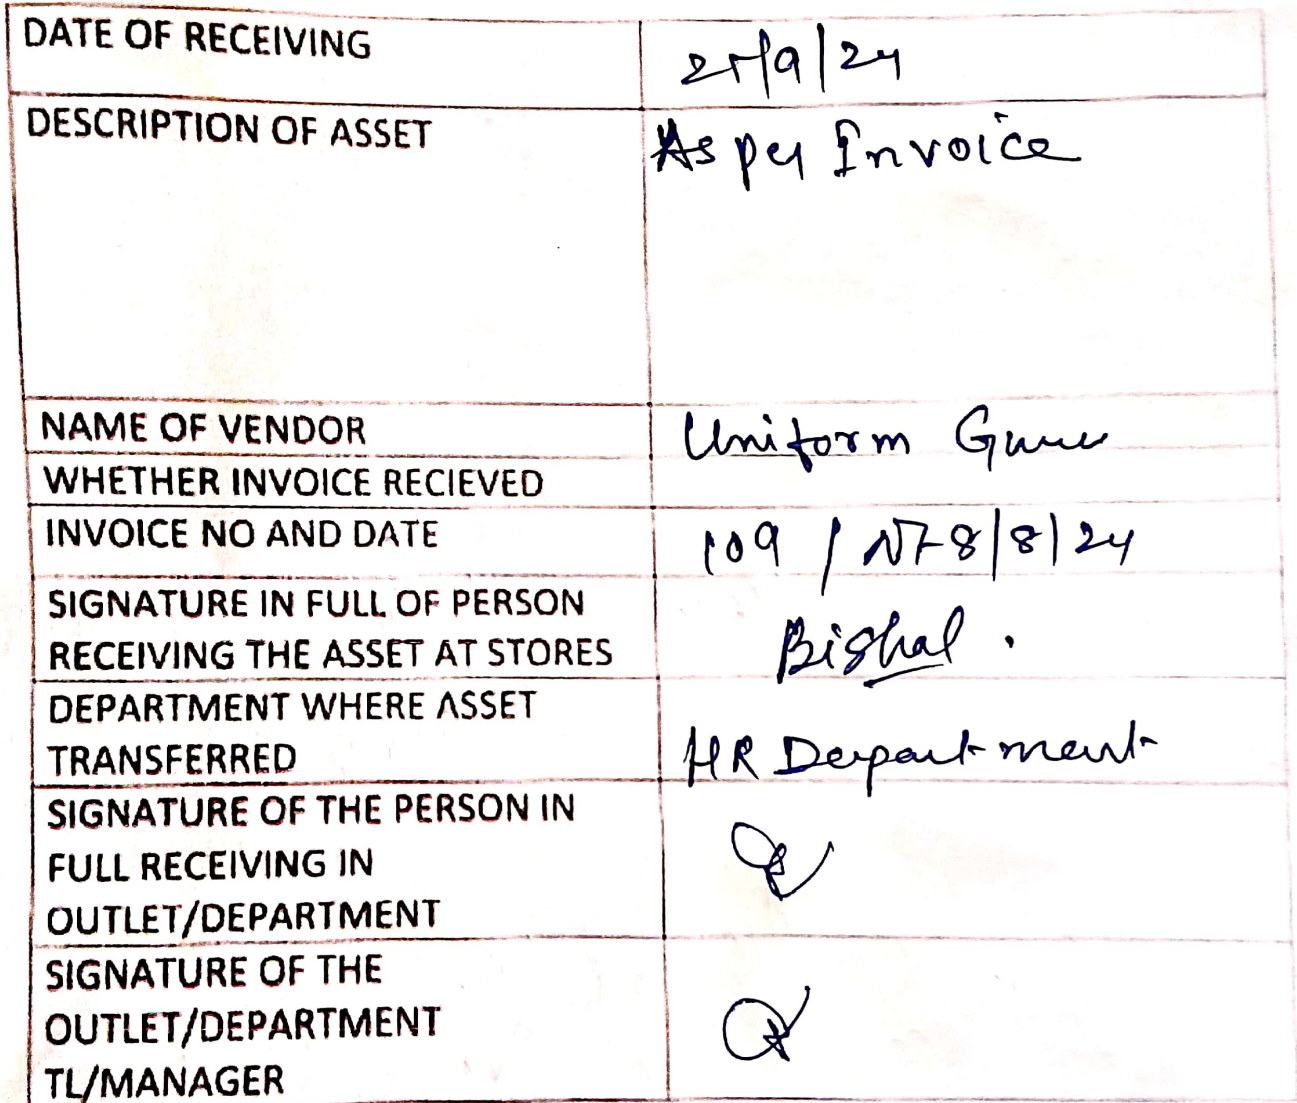 DATE OF RECEIVING 25/9/24
DESCRIPTION OF ASSET As per Invoice
NAME OF VENDOR Uniform Guru
WHETHER INVOICE RECIEVED
INVOICE NO AND DATE 109 / 8/8/24
SIGNATURE IN FULL OF PERSON
RECEIVING THE ASSET AT STORES Bishal .
DEPARTMENT WHERE ASSET
TRANSFERRED HR Department
SIGNATURE OF THE PERSON IN
FULL RECEIVING IN
OUTLET/DEPARTMENT
SIGNATURE OF THE
OUTLET/DEPARTMENT
TL/MANAGER